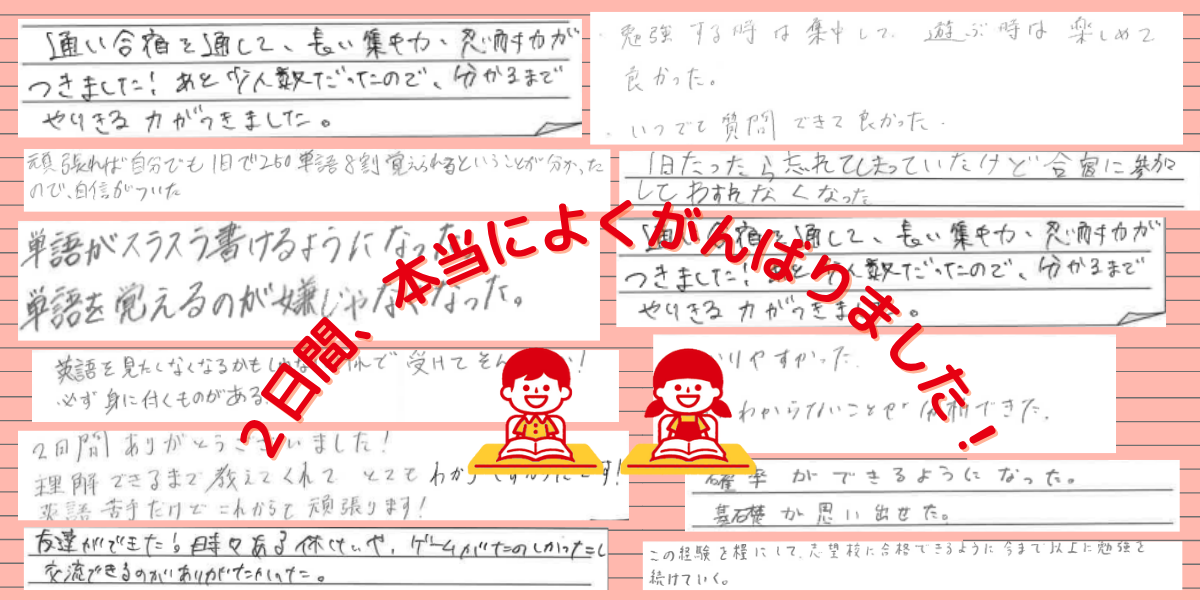 通い合宿を通して、長い集中力、忍耐力が
つきました！あと少人数だったので、分かるまで
やりきる力がつきました。
頑張れば自分でも1日で250単語8割覚えられるということが分かった
ので、自信がついた
単語がスラスラ書けるようになった
単語を覚えるのが嫌じゃなくなった。
英語を見たくなくなるかもしれな 受けてそん い！
必ず身に付くものがある
2日間ありがとうございました！
理解できるまで教えてくれて とても わか です！
英語苦手だけどこれからも頑張ります！
友達ができた！時々ある休けいや、ゲームがたのしかったし
交流できるのがありがたかった。
・勉強する時は集中して、遊ぶ時は楽しめて
良かった。
・いつでも質問できて良かった。
1日たったら忘れてしまっていたけど合宿に参加
してわすれなくなった
通い合宿を通して、長い集中力、忍耐力が
つきました！あと少人数だったので、分かるまで
やりきる力がつきました。
りやすかった。
わからないことを できた。
確率ができるようになった。
基礎が思い出せた。
この経験を糧にして、志望校に合格できるように今まで以上に勉強を
続けていく。
2日間、本当によくがんばりました！